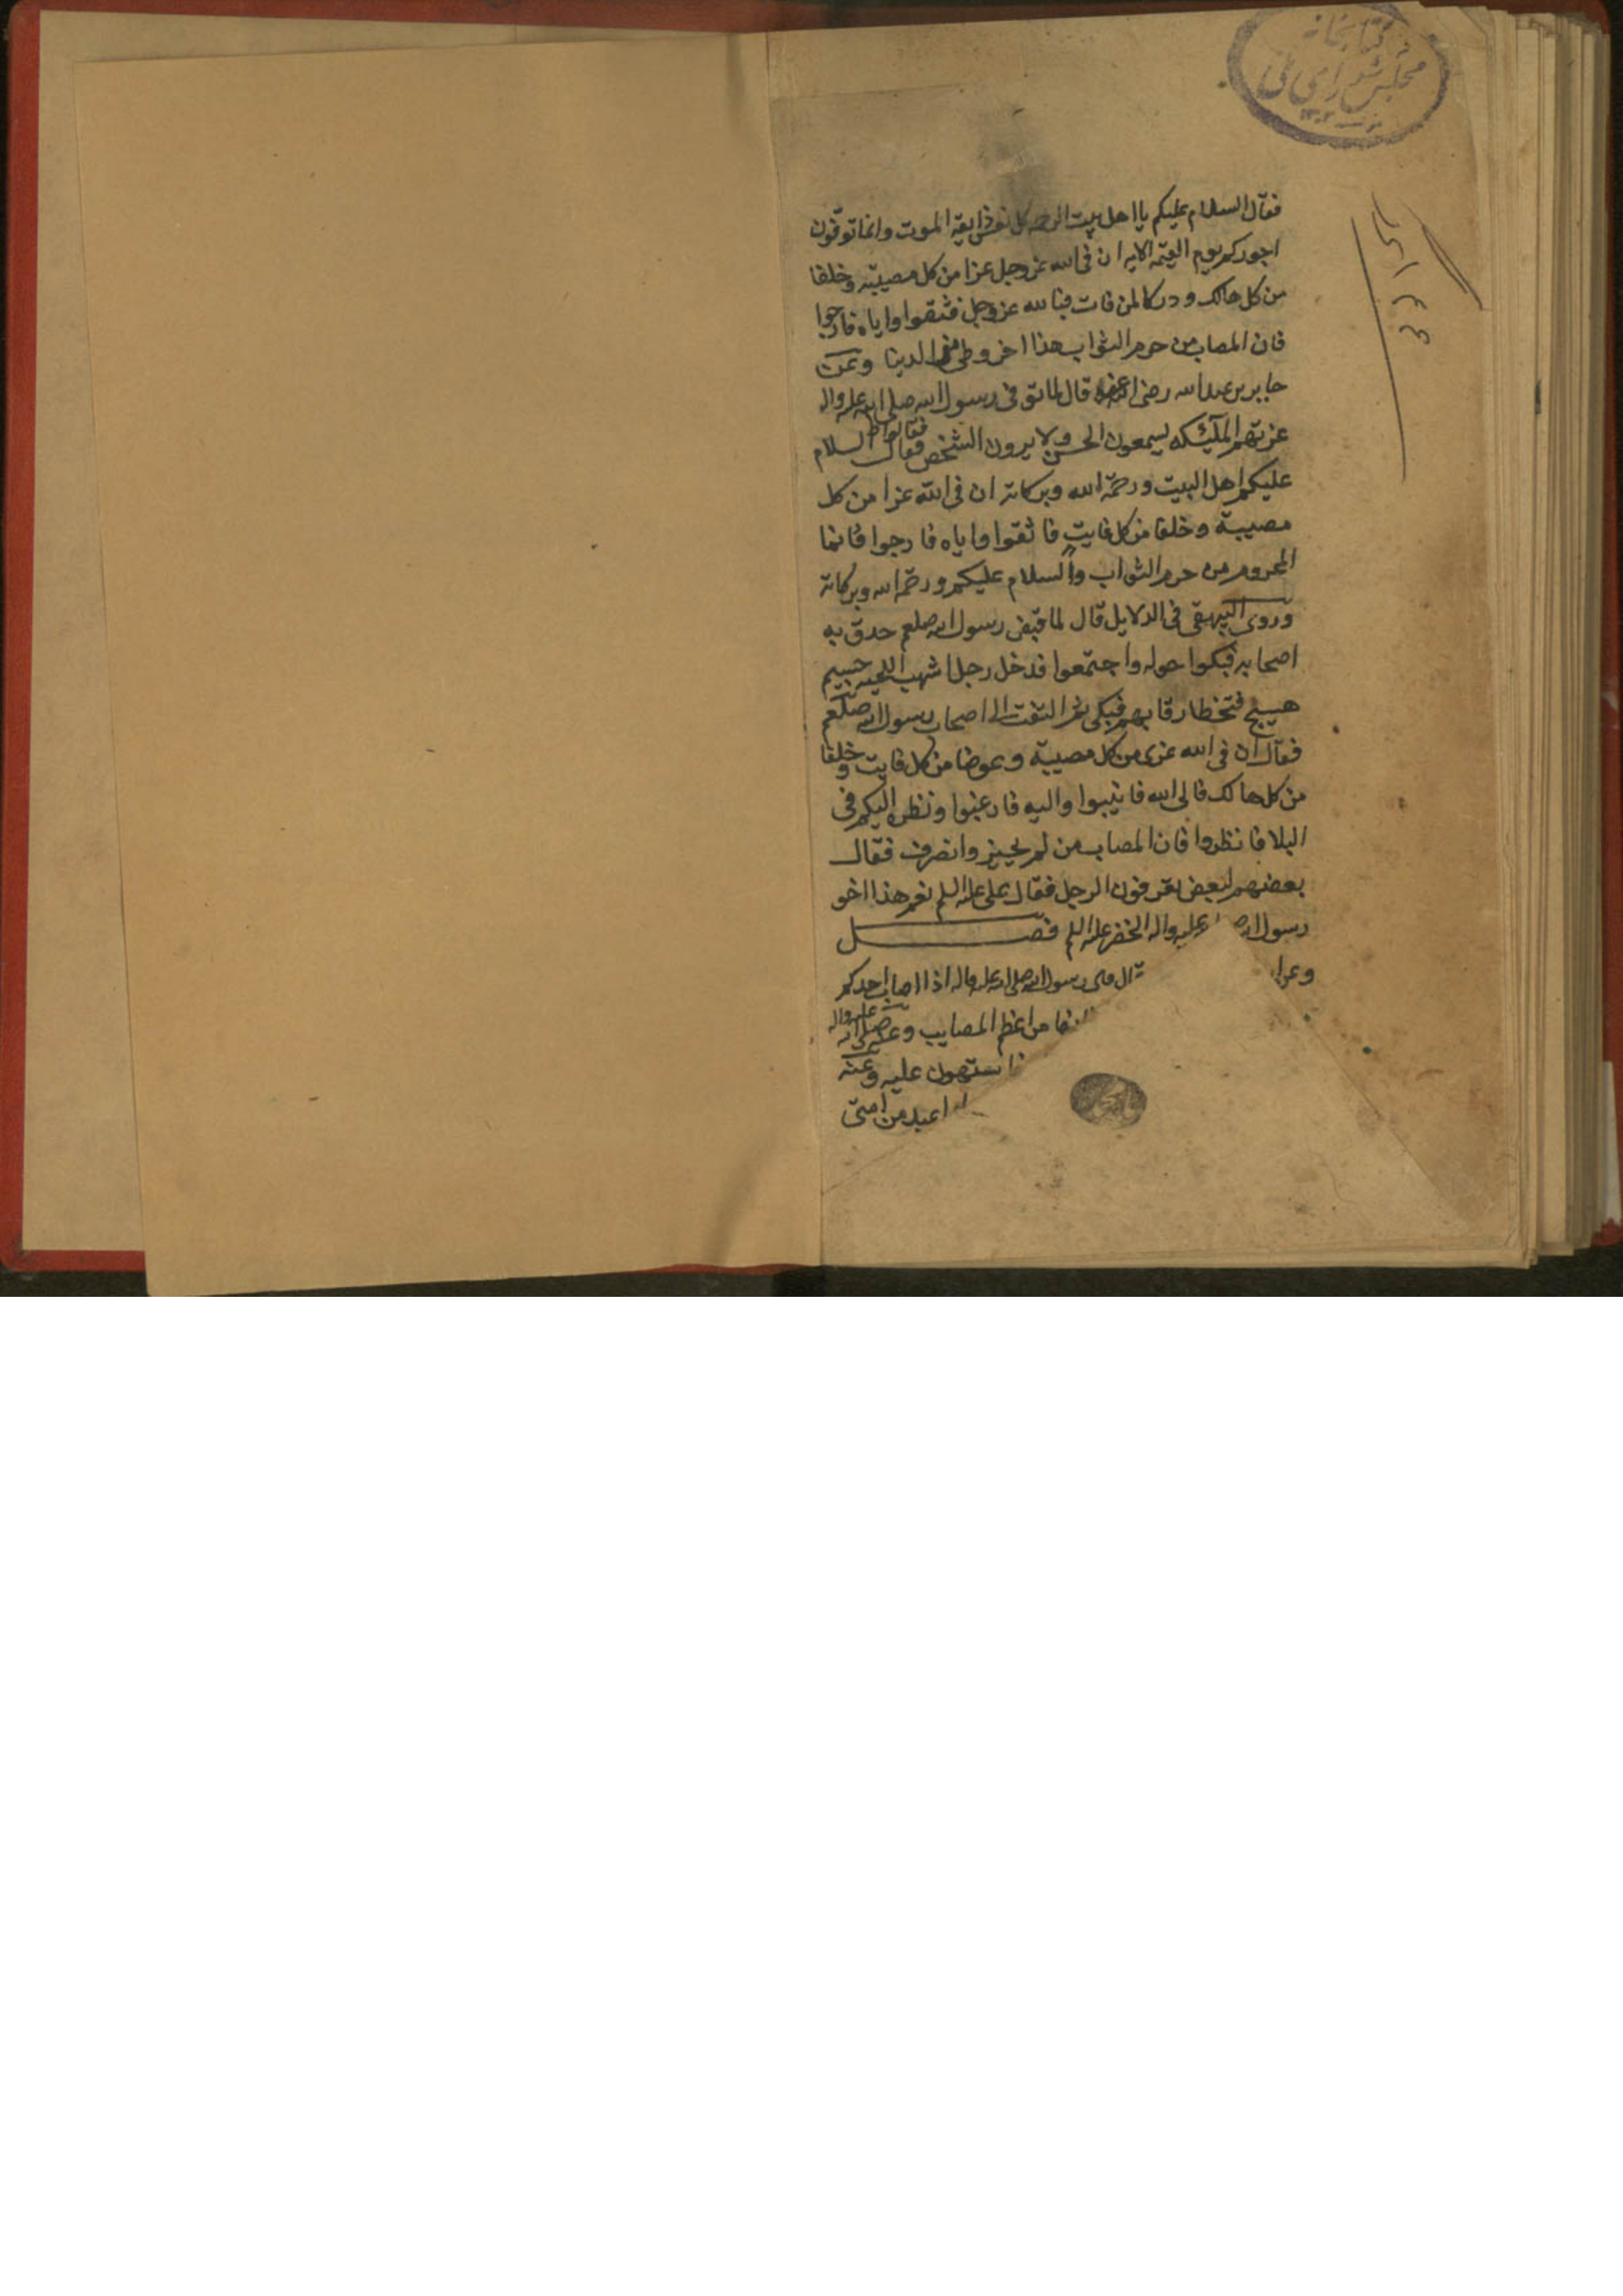 كتابخانه
مجلس شوراى ملى
فقال السلام عليكم يا اهل بيت الرحمه كل نفس ذايقة الموت وانما توفون
اجوركم يوم القيمة الايه ان فى الله عز وجل عزا من كل مصيبة وخلفا
من كل هالك ودركا لمن فات فبالله عز وجل فثقوا واياه فارجوا
فان المصاب من حرم الثواب هذا اخر وطى من الدنيا وعن
جابر بن عبدالله رضى الله عنه قال لما توفى رسول الله صلى الله عليه واله
عزتهم الملئكه يسمعون الحس ولا يرون الشخص فقالوا السلام
عليكم اهل البيت ورحمة الله وبركاته ان فى الله عزا من كل
مصيبة وخلفا من كل فايت فاثقوا واياه فارجوا فانما
المحروم من حرم الثواب والسلام عليكم ورحمة الله وبركاته
وروى البيهقى فى الدلايل قال لما قبض رسول الله صلعم حدق به
اصحابه فبكوا حوله واجتمعوا فدخل رجل اشهب اللحيه جسيم
صبيح فتخطا رقابهم فبكى ثم التفت الى اصحاب رسول الله صلعم
فقال ان فى الله عزى من كل مصيبة وعوضا من كل فايت وخلفا
من كل هالك فالى الله فانيبوا واليه فارغبوا ونظره اليكم فى
البلا فانظروا فان المصاب من لم يجبر وانصرف فقال
بعضهم لبعض تعرفون الرجل فقال على عليه السلم نعم هذا اخو
رسول الله عليه واله الخضر عليه السلم فصل
قال قال رسول الله صلى الله عليه واله اذا اصاب احدكم
من اعظم المصايب وعنه صلى الله عليه واله
عليه وعنه
عبد من امتى